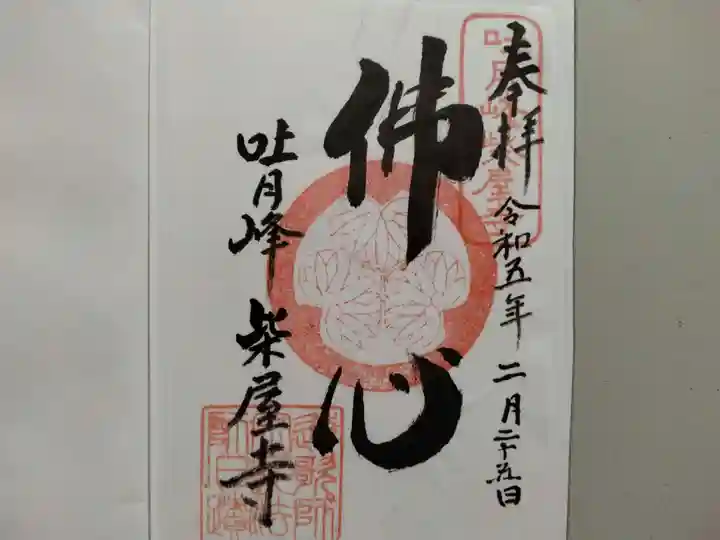 奉拝
令和五年 二月二十五日
佛心
吐月峰 柴屋寺
吐月峰柴屋寺